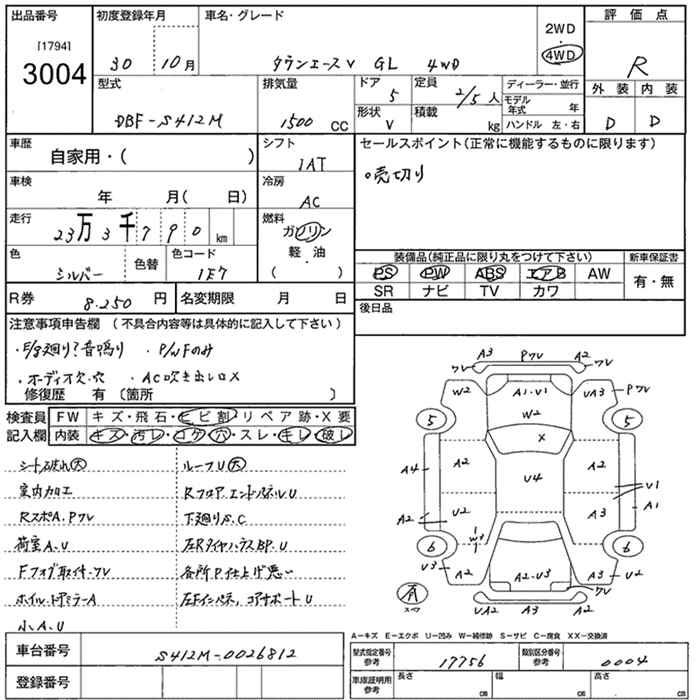 出品番号
[1794]
3004
初度登録年月
30 10月
車名・グレード
タウンエースV GL 4WD
2WD
4WD
評価点
R
外装 内装
D D
型式
DBF-S412M
排気量
1500 CC
ドア
5
形状
V
定員
2/5人
積載
kg
ディーラー・並行
モデル年式 年
ハンドル 左・右
車歴
自家用・( )
シフト
1AT
車検
年 月( 日)
冷房
AC
走行
23万3千790 km
燃料
ガソリン
軽・油
( )
色
シルバー
色替
色コード
1E7
セールスポイント(正常に機能するものに限ります)
。売切り
装備品(純正品に限り丸をつけて下さい)
PS PW ABS エアB AW
SR ナビ TV カワ
新車保証書
有・無
R券 8.250 円
名変期限 月 日
後日品
注意事項申告欄 (不具合内容等は具体的に記入して下さい)
・E/g廻り?音鳴り ・P/WFのみ
・オーディオ欠.穴 ・AC吹き出し口X
修復歴 有 〔箇所 〕
検査員記入欄
FW キズ・飛石・ヒビ割・リペア跡・X要
内装 キズ・汚レ・コゲ・穴・スレ・キレ・破レ
シート破れ大
ルーフU大
室内加工
Rフロア.エンドパネルU
RスポA.Pワレ
下廻りS.C
荷室A.U
左RタイヤハウスBP.U
Fフォグ取付.ワレ
各所P仕上げ悪い
ホイル.ドアミラーA
左Fインパネ、コアサポートU
小.A.U
A3 Pワレ A2
ワレ ワレ
W2 A1・V1 UA3 Pワレ
W2
5 X 5
A4 A2 U4 A2
U1
A2 U2 A3 A1
W3
6 6
U3 A2 A2・U3 A3 U2
有
スペア
UA2 A3 A2
A-キズ E-エクボ U-凹み W-補修跡 S-サビ C-腐食 XX-交換済
車台番号 S412M-0026812
登録番号
型式指定番号 参考 17756
類別区分番号 参考 0004
車庫証明用 参考
長さ cm
幅 cm
高さ cm